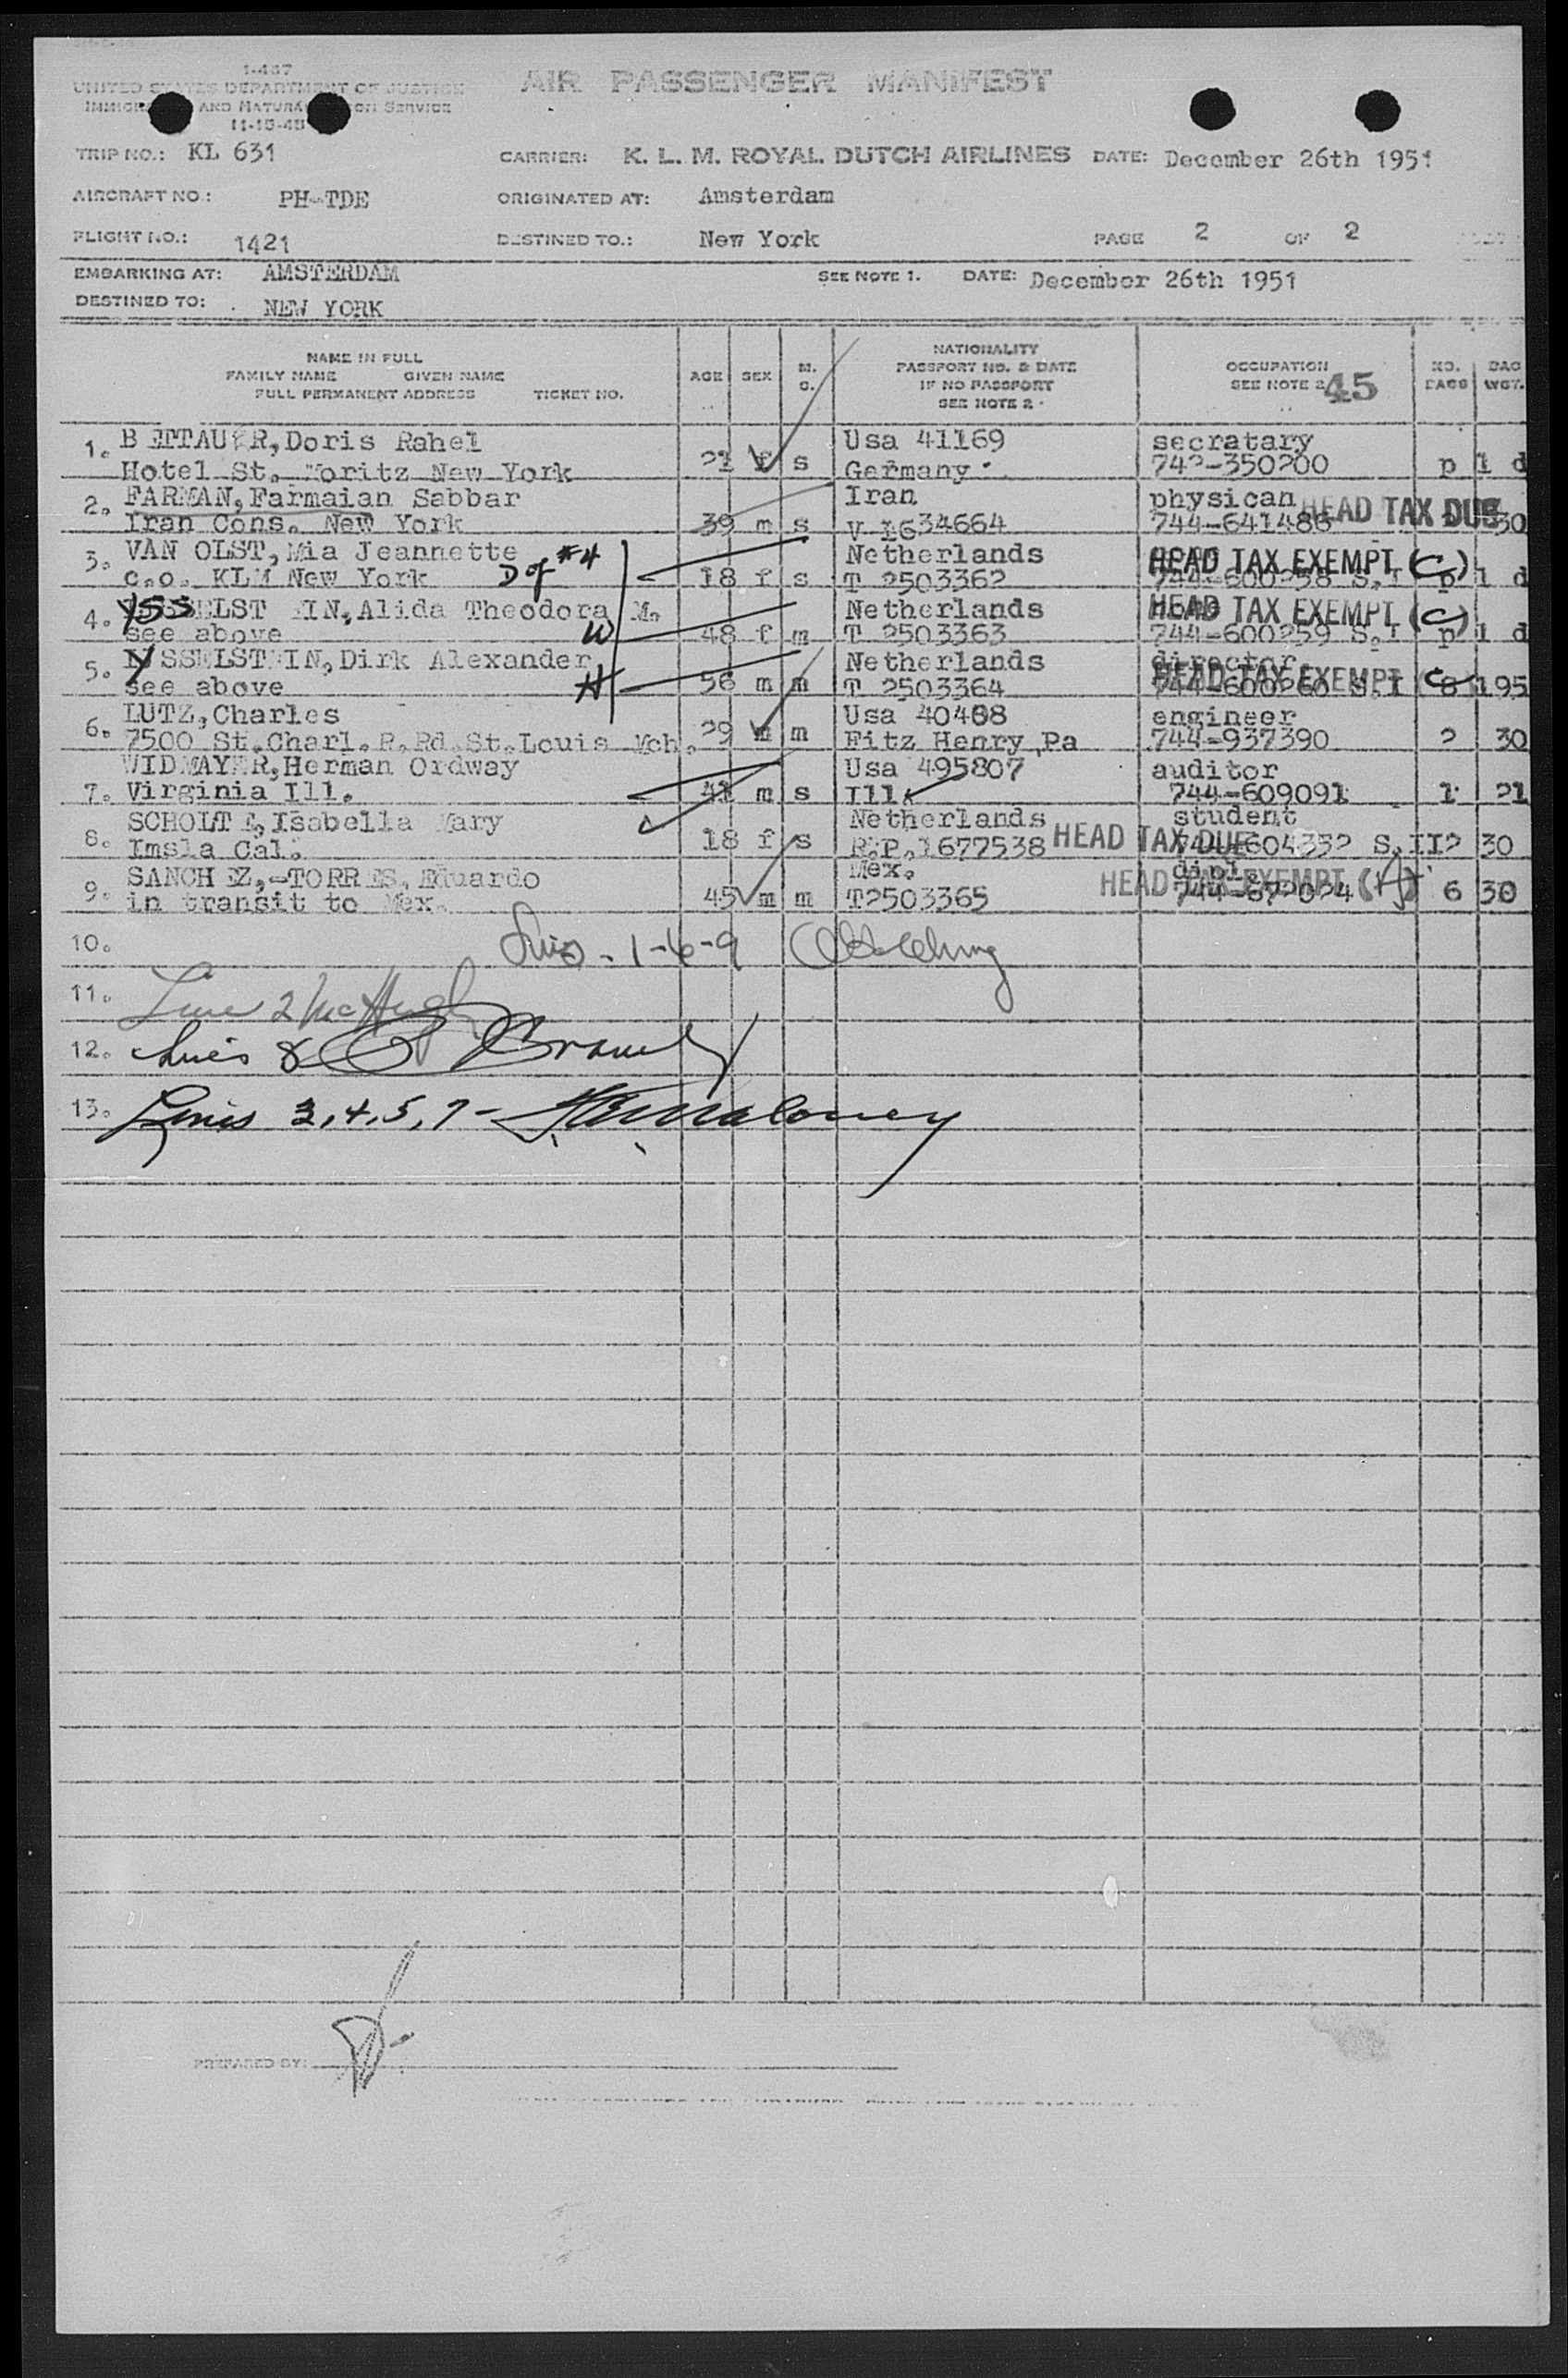 1-467
UNITED STATES DEPARTMENT OF JUSTICE
IMMIGRATION AND NATURALIZATION SERVICE
11-15-48
AIR PASSENGER MANIFEST
TRIP NO.: KL 631 CARRIER: K. L. M. ROYAL DUTCH AIRLINES DATE: December 26th 1951
AIRCRAFT NO.: PH-TDE ORIGINATED AT: Amsterdam
FLIGHT NO.: 1421 DESTINED TO.: New York PAGE 2 OF 2
EMBARKING AT: AMSTERDAM SEE NOTE 1. DATE: December 26th 1951
DESTINED TO: NEW YORK
NAME IN FULL
FAMILY NAME GIVEN NAME
FULL PERMANENT ADDRESS TICKET NO.
AGE SEX M. C.
NATIONALITY
PASSPORT NO. & DATE
IF NO PASSPORT
SEE NOTE 2
OCCUPATION
SEE NOTE 2 45
NO. BAGS BAG WGT.
1. BETTAUER, Doris Rahel Usa 41169 secratary
Hotel St. Moritz New York 21 f s Germany 742-350200 p 1 d
2. FARMAN, Farmaian Sabbar Iran physican HEAD TAX DUE
Iran Cons. New York 39 m s V 1634664 744-641486 30
3. VAN OLST, Mia Jeannette D of #4 Netherlands HEAD TAX EXEMPT (C)
c.o. KLM New York 18 f s T 2503362 744-600258 S.I p 1 d
4. YSSELSTEIN, Alida Theodora M. Netherlands HEAD TAX EXEMPT (C)
see above W 48 f m T 2503363 744-600259 S.I p 1 d
5. YSSELSTEIN, Dirk Alexander Netherlands director HEAD TAX EXEMPT C
see above H 56 m m T 2503364 744-600260 S.I 8 195
6. LUTZ, Charles Usa 40408 engineer
7500 St. Charl. R. Rd. St. Louis Mch. 29 m m Fitz Henry Pa 744-937390 2 30
WIDMAYER, Herman Ordway Usa 495807 auditor
7. Virginia Ill. 41 m s Ill. 744-609091 1 21
SCHOLTE, Isabella Mary Netherlands student
8. Imsla Cal. 18 f s R.P. 1677538 HEAD TAX DUE 744-604352 S.II 2 30
SANCHEZ,-TORRES, Eduardo Mex. dipl. HEAD TAX EXEMPT (H)
9. in transit to Mex. 45 m m T2503365 744-672024 6 30
10. Lines - 1-6-9
11. Line 2 McHugh
12. Lines 8
13. Lines 3, 4, 5, 7 - Maloney
PREPARED BY: